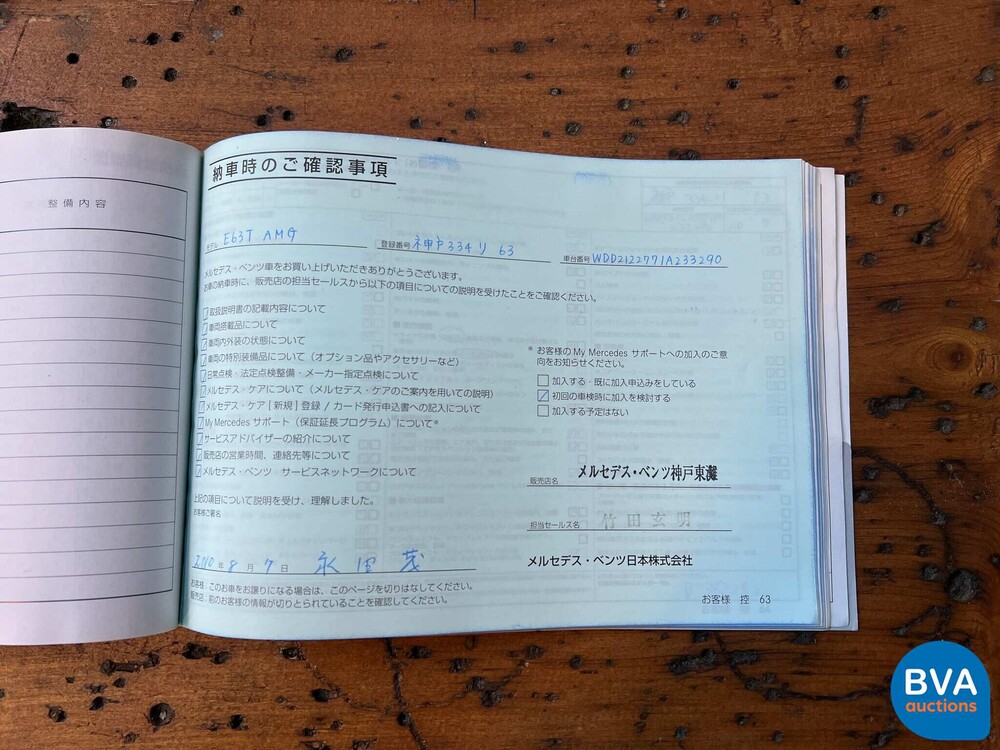 整備内容
納車時のご確認事項
モデル E63T AMG
登録番号 神戸 334 り 63
車台番号 WDD2122771A233290
メルセデス・ベンツ車をお買い上げいただきありがとうございます。
お車の納車時に、販売店の担当セールスから以下の項目についての説明を受けたことをご確認ください。
取扱説明書の記載内容について
車両搭載品について
車両内外装の状態について
車両の特別装備品について（オプション品やアクセサリーなど）
日常点検・法定点検整備・メーカー指定点検について
メルセデス・ケアについて（メルセデス・ケアのご案内を用いての説明）
メルセデス・ケア [ 新規 ] 登録 / カード発行申込書への記入について
My Mercedes サポート（保証延長プログラム）について*
サービスアドバイザーの紹介について
販売店の営業時間、連絡先等について
メルセデス・ベンツ サービスネットワークについて
上記の項目について説明を受け、理解しました。
お客様ご署名
2010 年 8 月 7 日 永田 茂
お客様：このお車をお譲りになる場合は、このページを切りはなしてください。
販売店：前のお客様の情報が切りとられていることを確認してください。
* お客様の My Mercedes サポートへの加入のご意
向をお知らせください。
加入する・既に加入申込みをしている
初回の車検時に加入を検討する
加入する予定はない
販売店名 メルセデス・ベンツ神戸東灘
担当セールス名 竹田玄明
メルセデス・ベンツ日本株式会社
お客様 控 63
BVA
auctions